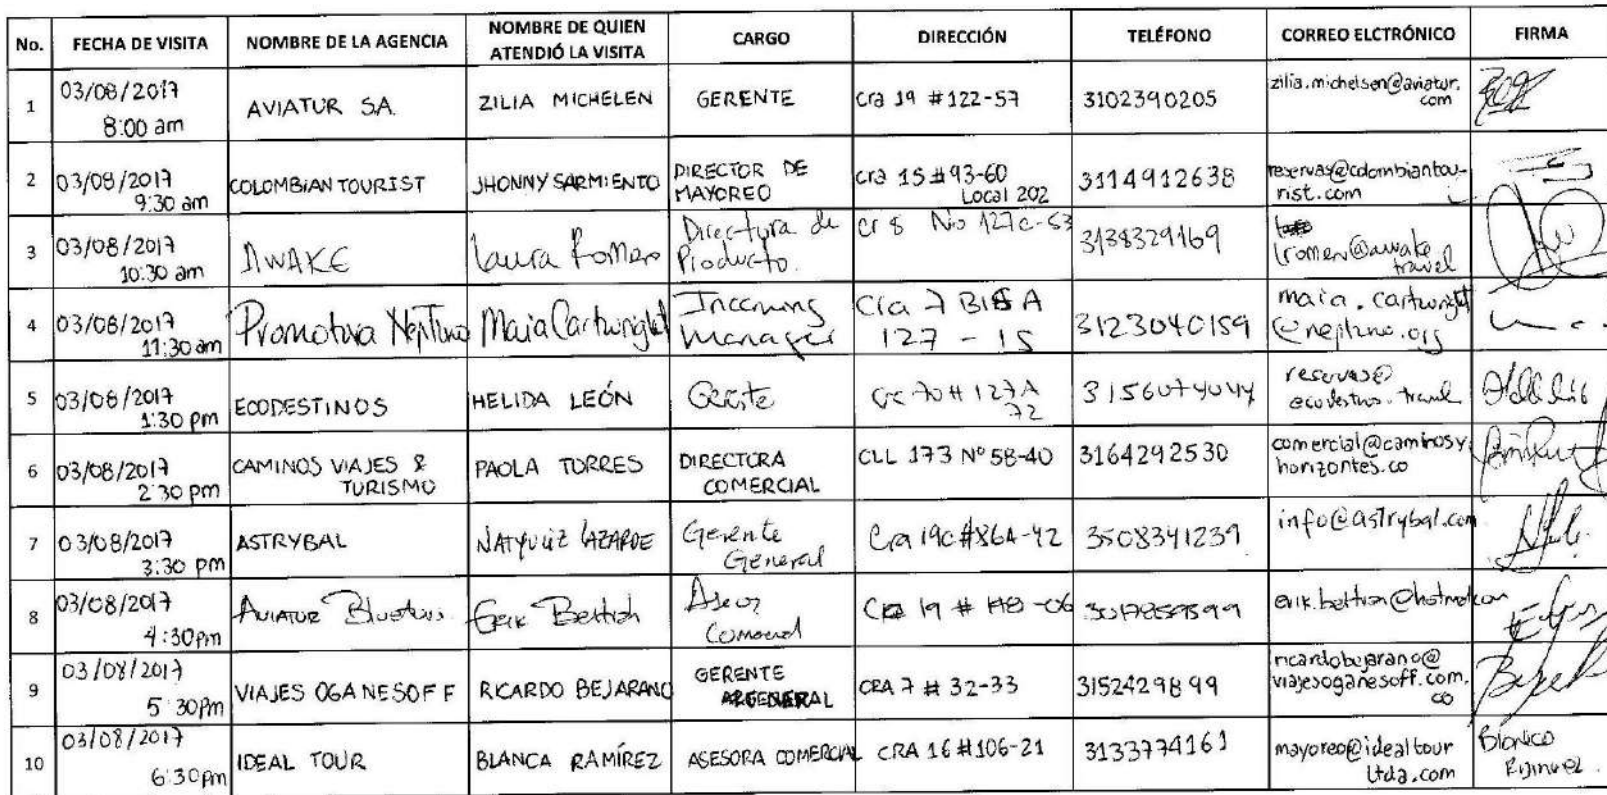 No. FECHA DE VISITA NOMBRE DE LA AGENCIA NOMBRE DE QUIEN ATENDIÓ LA VISITA CARGO DIRECCIÓN TELÉFONO CORREO ELCTRÓNICO FIRMA
1 03/08/2017 8:00 am AVIATUR S.A. ZILIA MICHELEN GERENTE Cra 19 #122-57 3102390205 zilia.michelsen@aviatur.com
2 03/08/2017 9:30 am COLOMBIAN TOURIST JHONNY SARMIENTO DIRECTOR DE MAYOREO cra 15 #93-60 Local 202 3114912638 reservas@colombiantourist.com
3 03/08/2017 10:30 am AWAKE Laura Romero Directora de Producto. cr 8 No 127c-53 3138329169 lromero@awake.travel
4 03/08/2017 11:30 am Promotora Neptuno Maia Cartwright Incoming Manager Cra 7 BIS A 127 - 15 3123040159 maia.cartwright@neptuno.org
5 03/08/2017 1:30 pm ECODESTINOS HELIDA LEÓN Gerente 70 # 127A 72 3156074044 reservas@ecodestinos.travel
6 03/08/2017 2:30 pm CAMINOS VIAJES & TURISMO PAOLA TORRES DIRECTORA COMERCIAL CLL 173 Nº 58-40 3164292530 comercial@caminosyhorizontes.co
7 03/08/2017 3:30 pm ASTRYBAL Gerente General Cra 19c #86A-42 3508341239 info@astrybal.com
8 03/08/2017 4:30pm AVIATUR Erik Beltrán Asesor Comercial 19 # erik.beltran@hotmail.com
9 03/08/2017 5:30pm VIAJES OGANESOFF RICARDO BEJARANO GERENTE GENERAL CRA 7 # 32-33 3152429899 ricardobejarano@viajesoganesoff.com.co
10 03/08/2017 6:30pm IDEAL TOUR BLANCA RAMÍREZ ASESORA COMERCIAL CRA 16 #106-21 3133774161 mayoreo@idealtourltda.com Blanca Ramirez